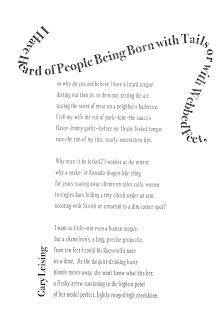 I Have Heard of People Being Born with Tails or with Webbed Feet,
so why do you not believe I have a lizard tongue
darting out then in, in then out, testing the air
tasting the scent of meat on a neighbor's barbecue.
I tell my wife the cut of pork–loin–the sauce's
flavor–honey garlic–before my fleshy forked tongue
runs the rim of my thin, nearly nonexistent lips.
Why must it be forked? I wonder at the mirror,
why a snake- or Komodo-dragon-like thing
for years scaring away clients on sales calls, women
in singles bars folding a tiny clutch under an arm,
scooting with Scotch or a martini to a dim corner spot?
I want so little–not even a human tongue,
but a chameleon's, a long, precise projectile:
from ten feet I could hit Roosevelt's nose
on a dime. As the daiquiri-drinking busty
blonde moves away, she won't know what hits her,
a fleshy arrow suctioning to the highest point
of her model perfect, lightly rouged high cheekbone.
Gary Leising